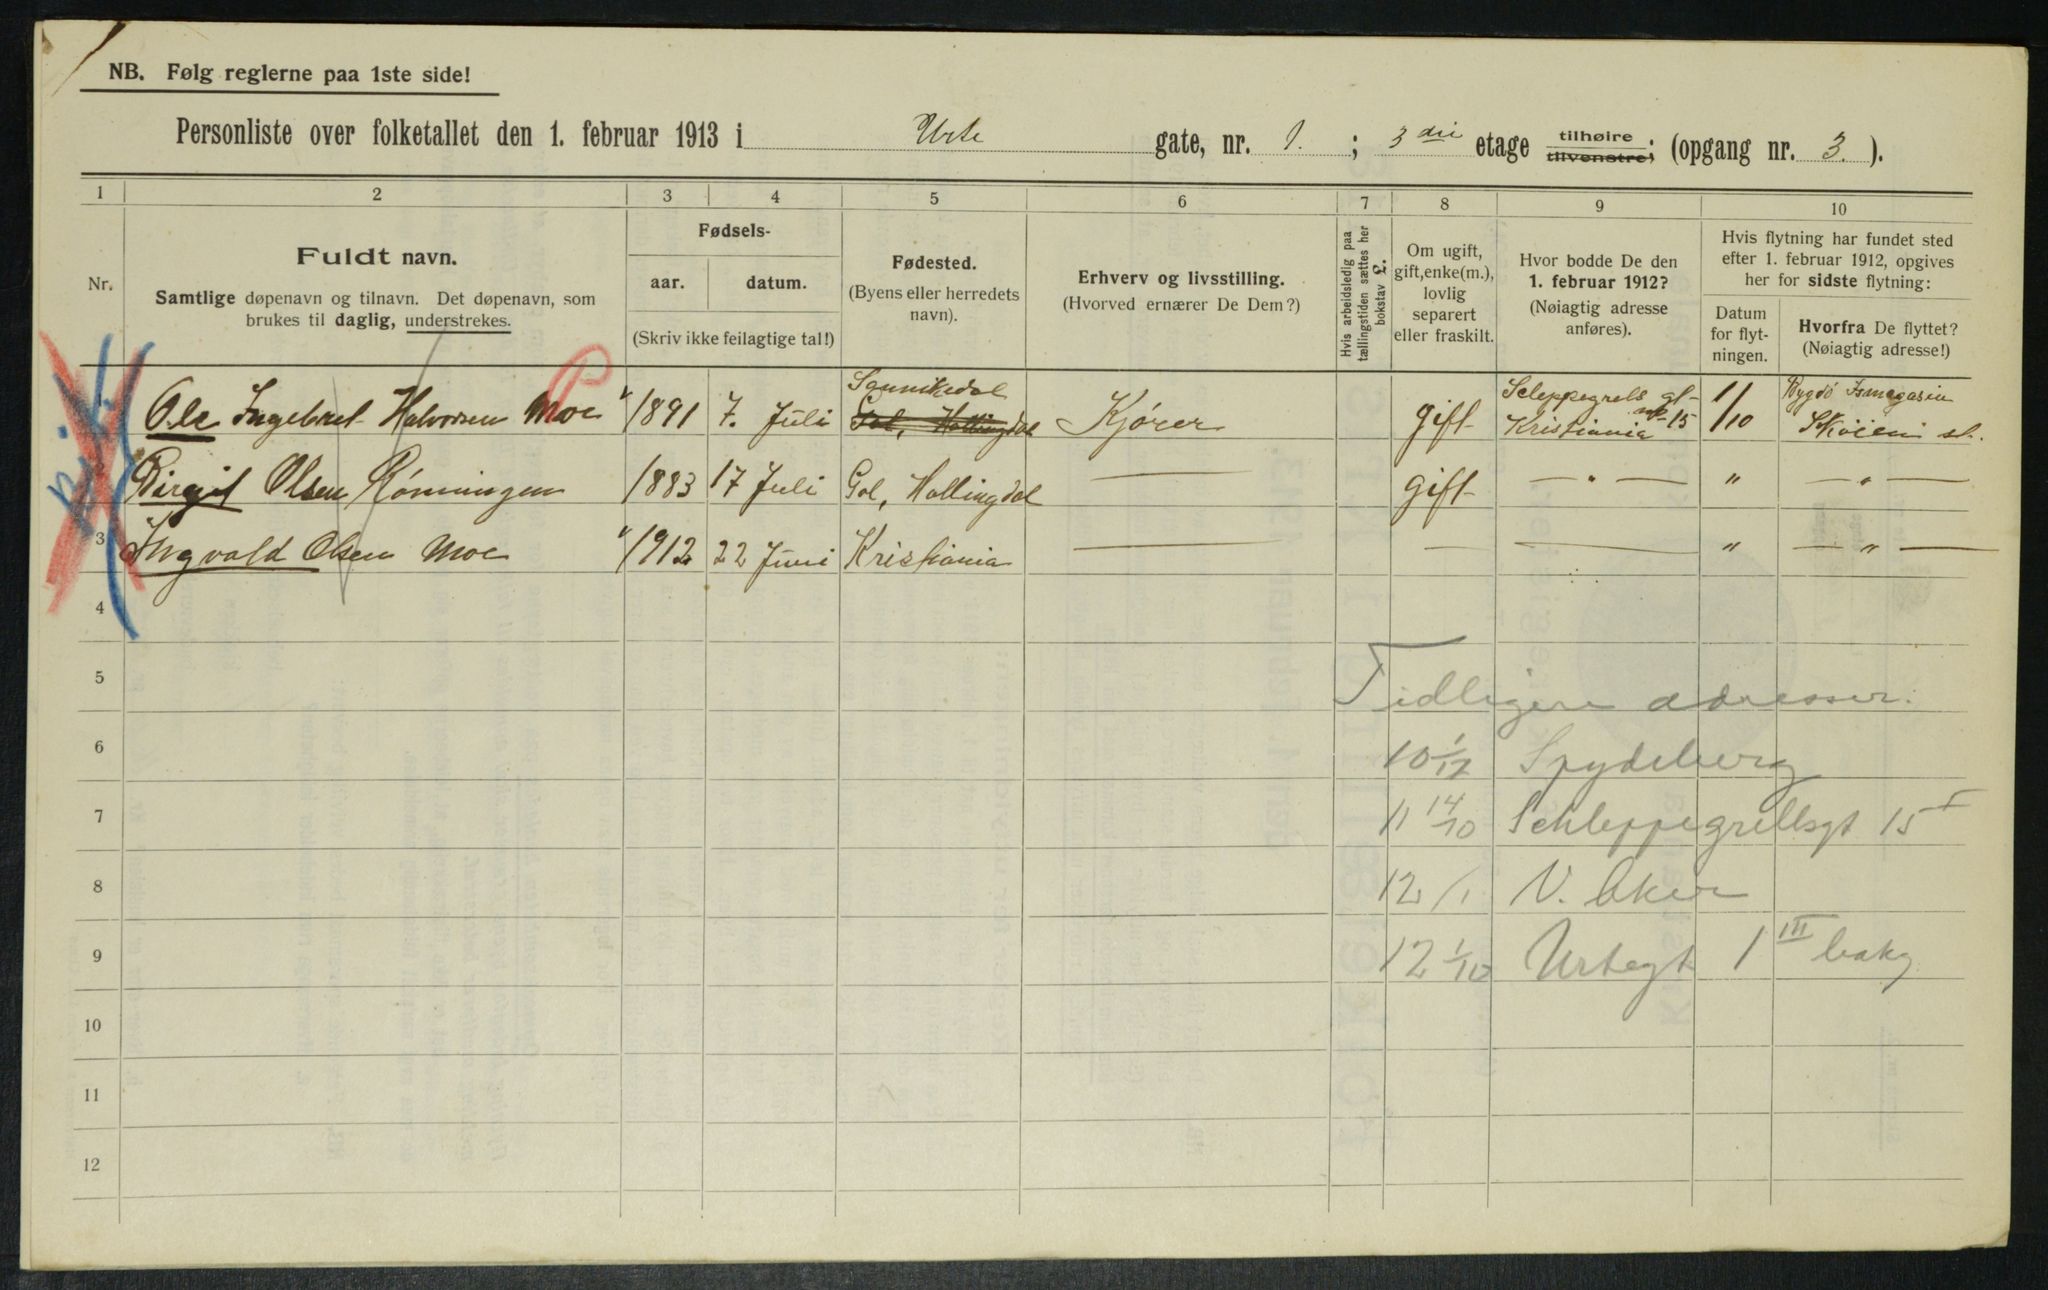 NB. Følg reglerne paa 1ste side!
Personliste over folketallet den 1. februar 1913 i Urte gate, nr. 1. ; 3 die etage tilhøire tilvenstre; (opgang nr. 3. ).
1 2 3 4 5 6 7 8 9 10
Nr.
Fuldt navn.
Samtlige døpenavn og tilnavn. Det døpenavn, som
brukes til daglig, understrekes.
Fødsels-
aar. datum.
(Skriv ikke feilagtige tal!)
Fødested.
(Byens eller herredets
navn).
Erhverv og livsstilling.
(Hvorved ernærer De Dem?)
Hvis arbeidsledig paa
tællingstiden sættes her
bokstav L.
Om ugift,
gift, enke(m.),
lovlig
separert
eller fraskilt.
Hvor bodde De den
1. februar 1912?
(Nøiagtig adresse
anføres).
Hvis flytning har fundet sted
efter 1. februar 1912, opgives
her for sidste flytning:
Datum
for flyt-
ningen.
Hvorfra De flyttet?
(Nøiagtig adresse!)
Ole Ingebret Halvorsen Moe 1891 7. Juli Sannikedal Gol, Hallingdal Kjører gift Sleppegrels gt. nr 15 Kristiania 1/10 Bygdö Ismagasin Skøien st.
2 Birgit Olsen Rønningen 1883 17 Juli Gol, Hallingdal — gift — " — " — " —
3 Ingvald Olsen Moe 1912 22 Juni Kristiania — — — " — " —
4
5 Tidligere adresser:
6 10 1/12 Spydeberg
7 11 14/10 Schleppegrellsgt 15 I
8 12 /1 V. Aker
9 12 1/10 Urtegt 1 III bakg
10
11
12